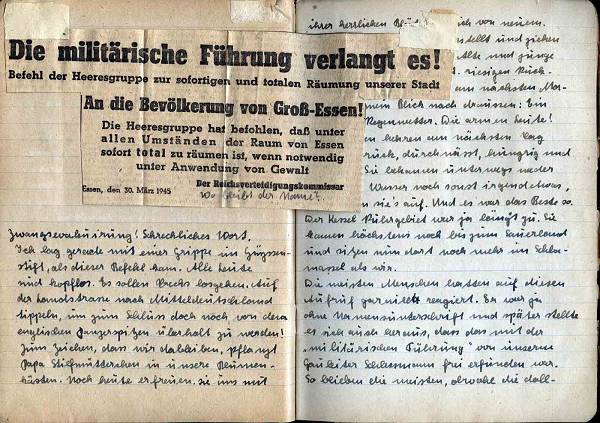 Die militärische Führung verlangt es!
Befehl der Heeresgruppe zur sofortigen und totalen Räumung unserer Stadt
An die Bevölkerung von Groß-Essen!
Die Heeresgruppe hat befohlen, daß unter
allen Umständen der Raum von Essen
sofort total zu räumen ist, wenn notwendig
unter Anwendung von Gewalt
Der Reichsverteidigungskommissar
Essen, den 30. März 1945
Wo bleibt der Name?
Zwangsevakuierung! Schreckliches Wort.
Ich lag gerade mit einer Grippe im
stift, als dieser Befehl kam. Alle Leute
sind kopflos. Es sollen Trecks losgehen. Auf
der Landstrasse nach Mitteldeutschland
tippeln, um zum Schluss doch noch von den
englischen Panzerspitzen überholt zu werden!
Zum Zeichen, dass wir dableiben, pflanzt
Papa Stiefmütterchen in unsere Blumen-
kästen. Noch heute erfreuen sie uns mit
ihrer herrlichen von neuem.
und ziehen
Alte und junge
riesigen Ruck-
am nächsten Mor-
Blick nach draussen: Ein
Regenwetter. Die armen Leute!
kehren am nächsten Tag
durchnässt, hungrig und
Sie bekamen unterwegs weder
Wasser noch sonst irgendetwas,
sie's auf. Und es war das Beste so.
Der Kessel Ruhrgebiet war ja längst zu. Sie
kamen höchstens noch bis zum Sauerland
und sitzen nun dort noch mehr im Schla-
massel als wir.
Die meisten Menschen hatten auf diesen
Aufruf gar nicht reagiert. Er war ja
ohne Namensunterschrift und später stellte
es sich auch heraus, dass das mit der
"militärischen Führung" von unserm
Gauleiter Schlessmann frei erfunden war.
So blieben die meisten, obwohl die toll-